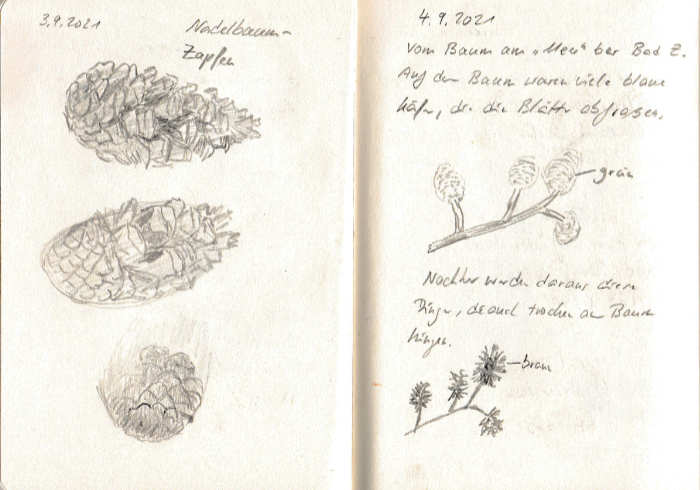 3.9.2021
Nadelbaum-
Zapfen
4.9.2021
Vom Baum am „Meer" bei Bad Z.
Auf dem Baum waren viele blaue
Käfer, die die Blätter abfrasen.
grün
Nachher werden daraus diese
Dinger, die auch trocken am Baum
hängen.
braun